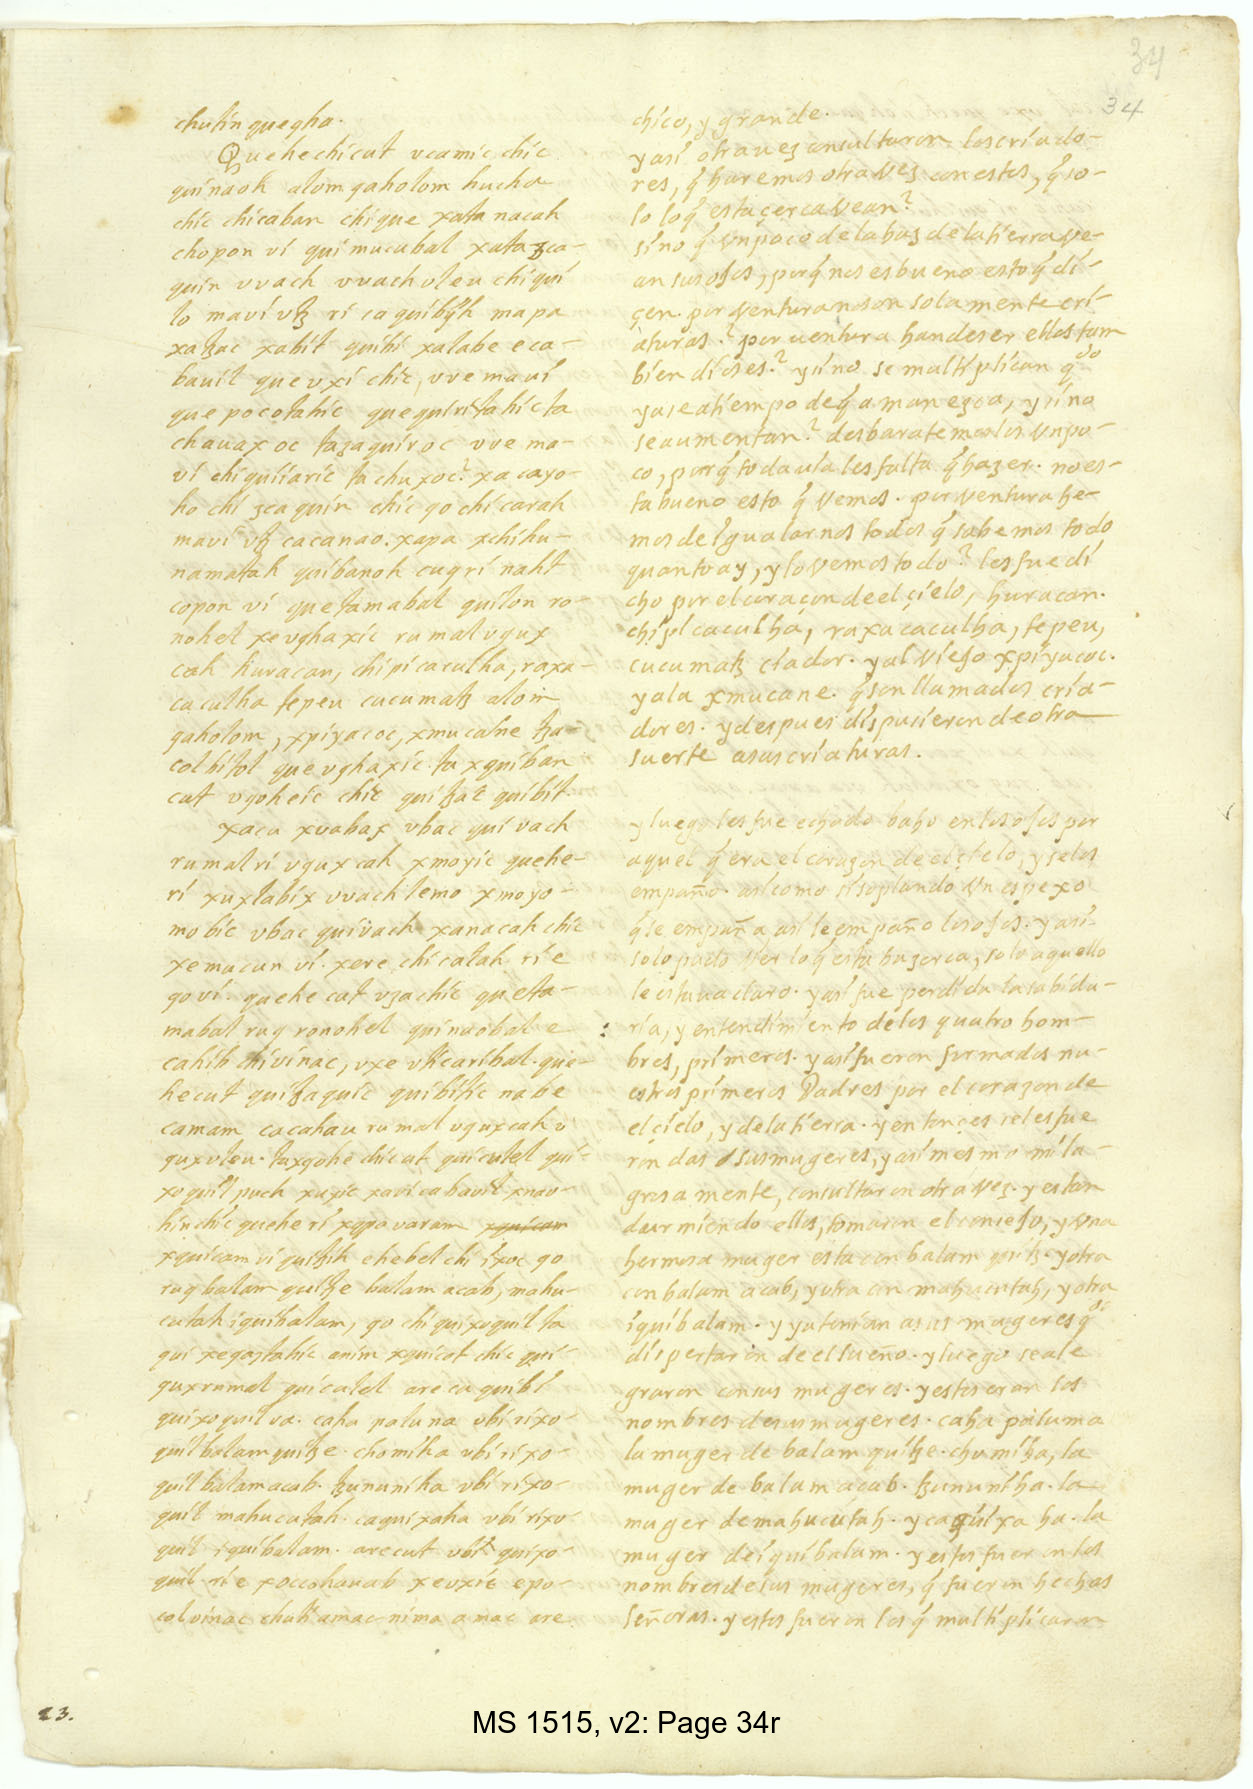 34
34
chutin queqha.
Quehe chicut vcamic chic
quinaoh alom qaholom hucha
chic chicaban chique xata nacah
chopon vi qui mucubal xata zca-
quin vvach vvach vleu chiqui
lo mavi vtz ri ca quibijh mapa
xatzac xabit quibi xalabe e ca-
bauil que vxi chic, vve maui
que pocotahic quequiritahic ta
chauax oc tazaquiroc vve ma-
vi chiquiiaric ta chuxoc? xa cayo-
ho chi zcaquin chic qo chicarah
mavi vtz cacanao. xapa xchihu-
namatah quibanoh cuq ri naht
copon vi quetamabal quilon ro-
nohel xe vqhaxic rumal vqux
cah huracan, chipi caculha, raxa-
caculha tepeu cucumatz alom
qaholom, xpiyacoc, xmucane tza-
col bitol que vqhaxic. ta xquiban
cut vqoheic chic quitzac quibit.
xaca xvabax vbac qui vach
rumal ri vqux cah xmoyic quehe-
ri xuxlabix vvach lemo xmoyo-
mobic vbac quivach xanacah chic
xemucun vi. xere chi calah ri e
qo vi. quehe cut vzachic queta-
mabal ruq ronohel quinaobal e
cahib chi vinac, vxe vticaribal. que-
hecut quitzaquic quibitic nabe
camam cacahau rumal vqux cah v
qux vleu. taxqohe chicut quiculel qui-
xoquil puch xuxic xavi cabauil xnao-
hin chic queheri xqpa varam xquicam
xquicam vi quitzih ehebel chi ixoc qo
ruq balam quitze balam acab, mahu-
cutah iquibalam, qo chi quixoquil ta
qui xeqaztahic anim xquicot chic qui-
qux rumal quiculel are ca quibi
quixoquil va. caha paluna vbi rixo-
quil balam quitze. chomiha vbi rixo-
quil balam acab. tzununiha vbi rixo-
quil mahucutah. caquixaha vbi rixo
quil iquibalam. arecut vbi quixo-
quil ri e xoccohauab xevxic epo-
col vinac chuti amac nima amac are
chico, y grande.
y así otra uez consultaron los criado-
res, q̃ haremos otra vez con estos, q̃ so-
lo lo q̃ esta çerca vean?
sino q̃ vn poco de la haz de la tierra ve-
an sus ojos, porq̃ no es bueno esto q̃ di-
çen. por ventura no son solamente cri-
aturas? por uentura han de ser ellos tam
bien dioses? y si no se multiplican q̃ do
ya sea tiempo de q̃ amanezca, y si no
se aumentan? desbaratemoslos vn po-
co, porq̃ todauia les falta q̃ hazer. no es-
ta bueno esto q̃ vemos. por ventura he-
mos de igualarnos todos q̃ sabemos todo
quanto ay, y lo vemos todo? les fue di
cho por el coraçon de el çielo, huracan.
chipi caculhá, raxa caculha, tepeu,
cucumatz criador. y al viejo xpiyacoc.
y a la xmucane. q̃ son llamados cria-
dores. y despues dispusieron de otra
suerte a sus criaturas.
y luego les fue echado baho en los ojos por
aquel q̃ era el corazon de el çielo, y se los
empaño. asi como si soplando vn espexo
q̃ se empaña, asi se empaño los ojos. y así
solo pudo ver lo q̃ esta ha zerca, solo aquello
le estaua claro. y así fue perdida la sabidu-
ria, y entendimiento de los quatro hom-
bres, primeros. y así fueron formados nu-
estros primeros Padres por el corazon de
el çielo, y de la tierra. y entonçes se les fue
ron das sus mugeres, y así mesmo mila-
grosamente, consultaron otra vez. y estan
durmiendo ellos, tomaron el consejo, y vna
hermosa muger esta con balam quitz. y otra
con balam acab, y otra con mahucutah, y otra
iquibalam. y ya tenian a sus mugeres q̃ do
dispertaron de el sueño. y luego se ale
graron con sus mugeres. y estos eran los
nombres de sus mugeres. caha paluma
la muger de balam quitze. chomiha, la
muger de balam acab. tzununiha. la
muger de mahucutah. y caquixa ha. la
muger de iquibalam. y estos fueron los
nombres de sus mugeres, q̃ fueron hechas
señoras. y estos fueron los q̃ multiplicaron
23.
MS 1515, v2: Page 34r